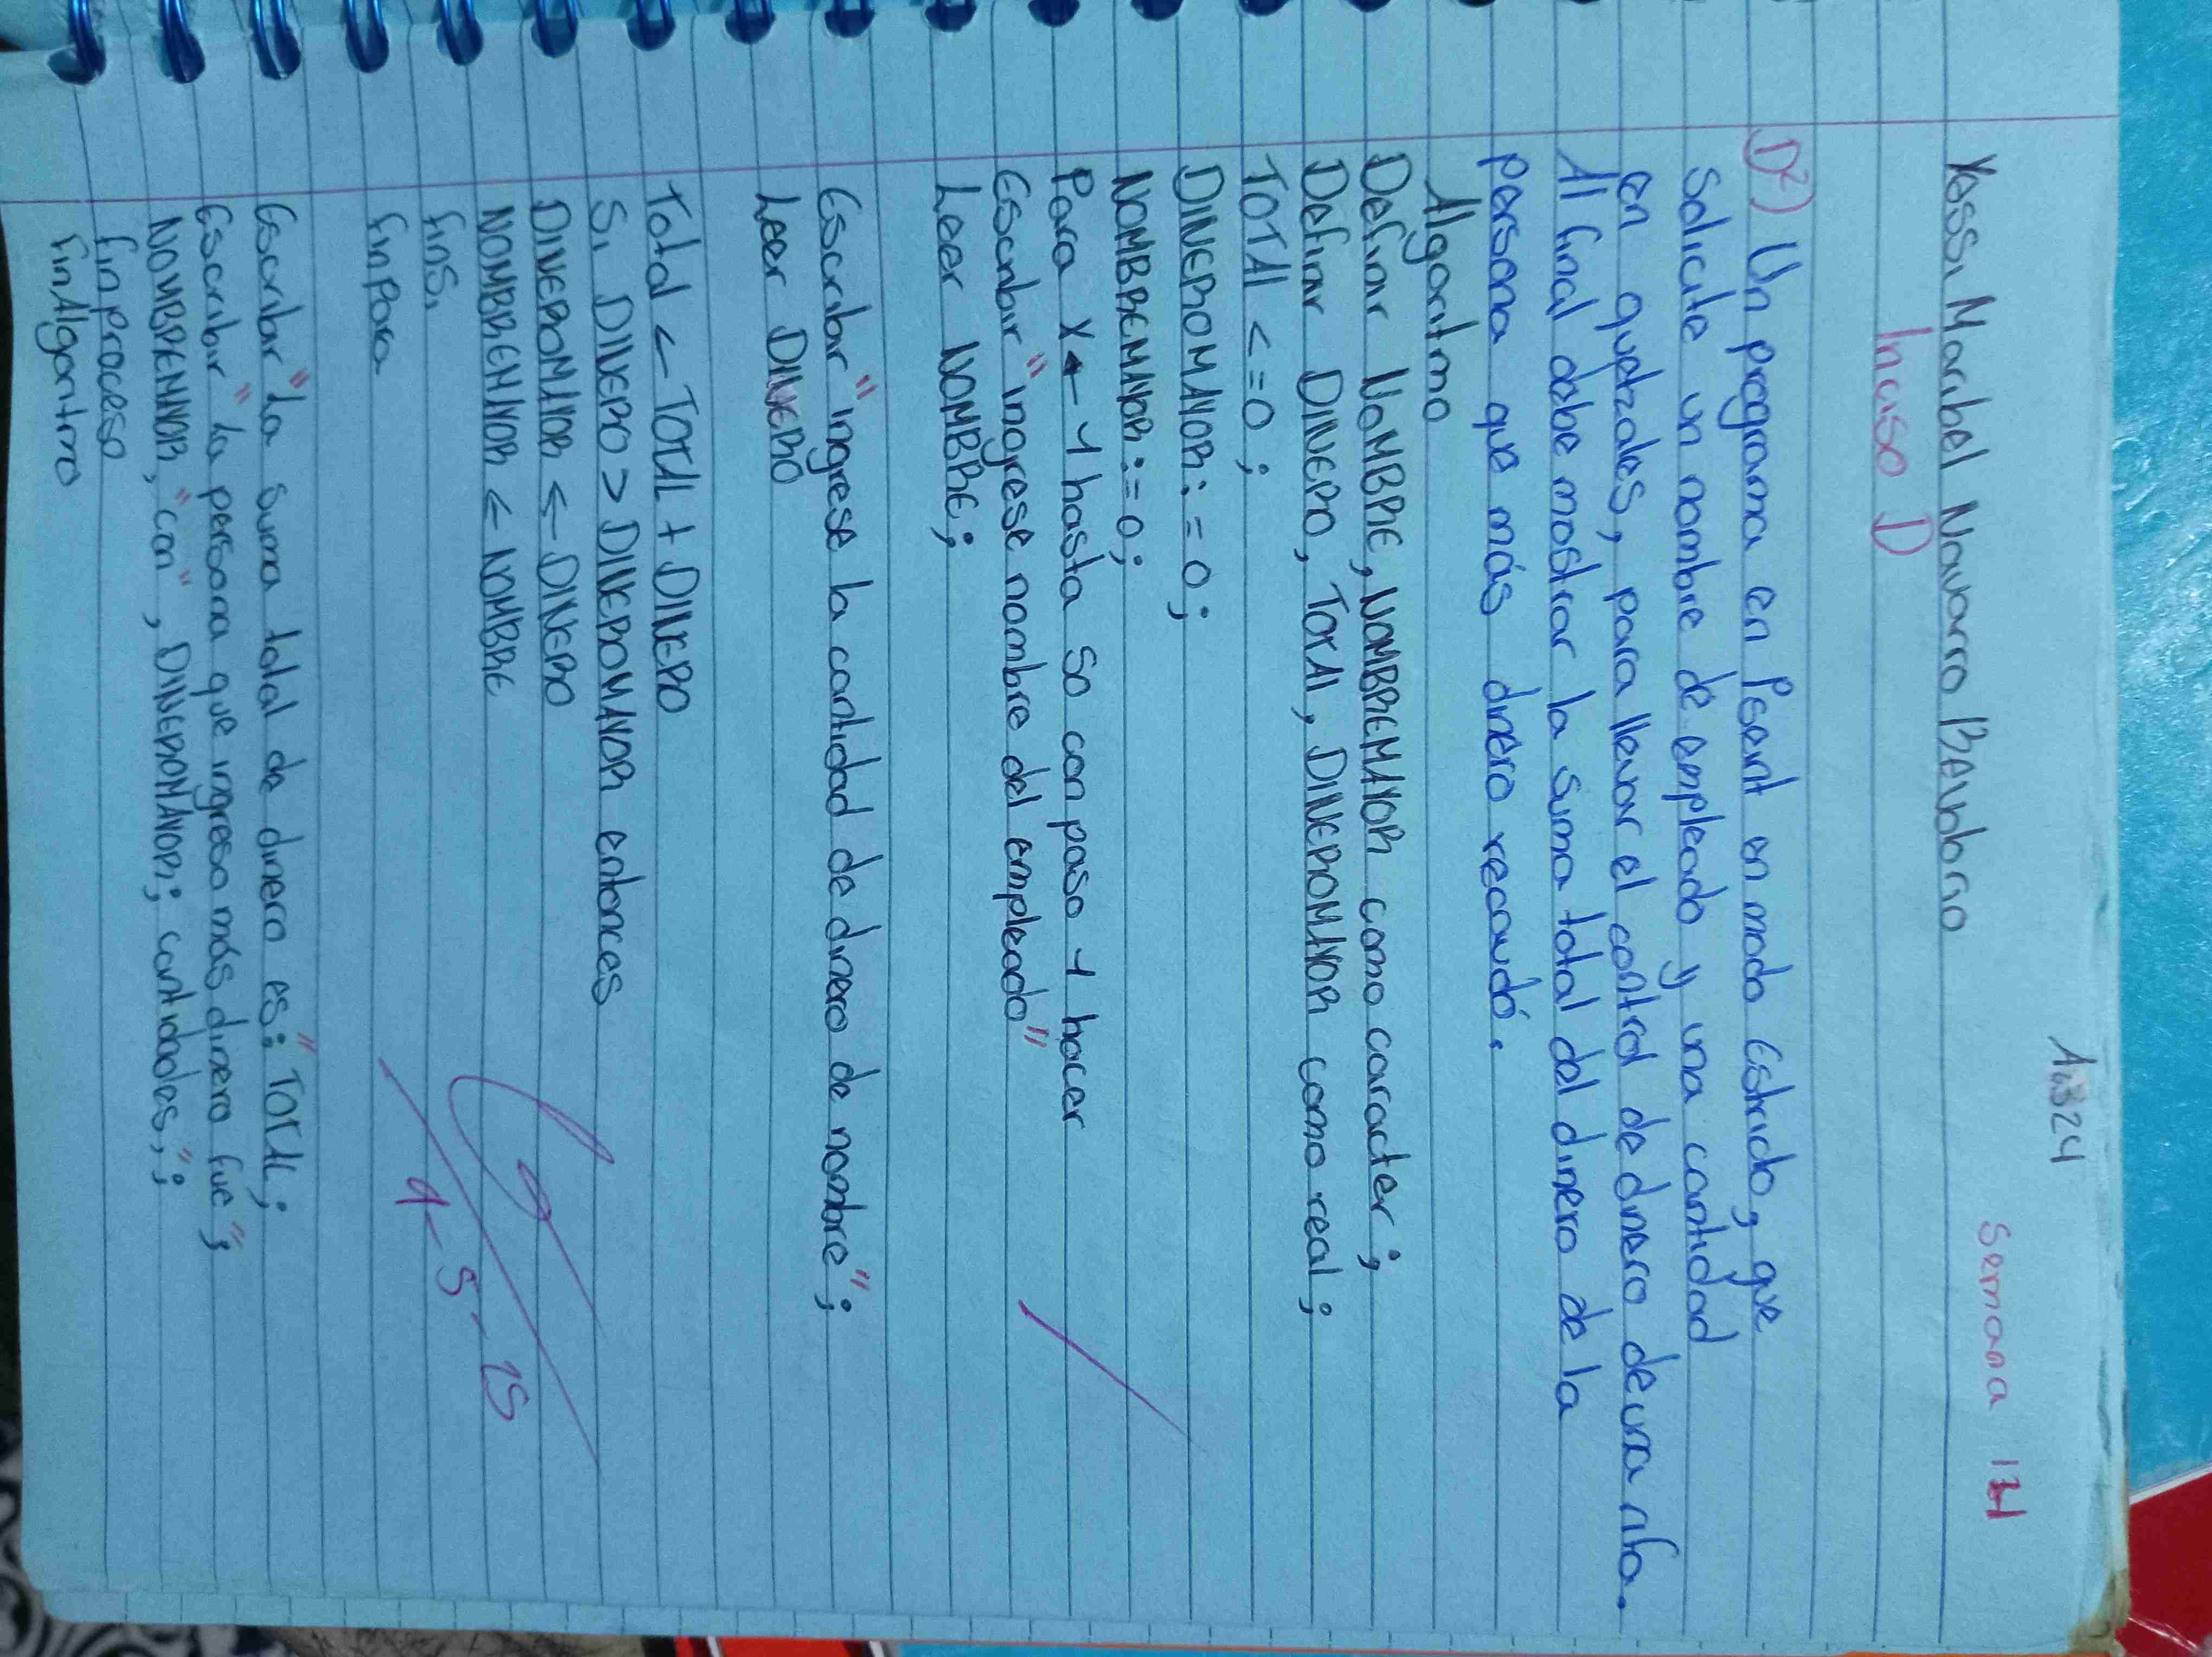 A:324
Semana 17
Yessi Maribel Navarro
Inciso D
D²) Un programa en Pseint en modo estricto, que
solicite un nombre de empleado y una cantidad
en quetzales, para llevar el control de dinero de una rifa.
Al final debe mostrar la suma total del dinero de la
persona que más dinero recaudó.
Algoritmo
Definir NOMBRE, NOMBREMAYOR como caracter;
Definir DINERO, TOTAL, DINEROMAYOR como real;
TOTAL <=0;
DINEROMAYOR:=0;
NOMBREMAYOR:=0;
Para X ← 1 hasta 50 con paso 1 hacer
Escribir "ingrese nombre del empleado"
Leer NOMBRE;
Escribir "ingrese la cantidad de dinero de nombre";
Leer DINERO
Total ← TOTAL + DINERO
Si DINERO > DINEROMAYOR entonces
DINEROMAYOR ← DINERO
NOMBREMAYOR ← NOMBRE
finsi
finpara
9-5-25
Escribir "La suma total de dinero es:" TOTAL;
Escribir "La persona que ingreso más dinero fue",
NOMBREMAYOR, "con", DINEROMAYOR; cantidades,";
finproceso
finAlgoritmo